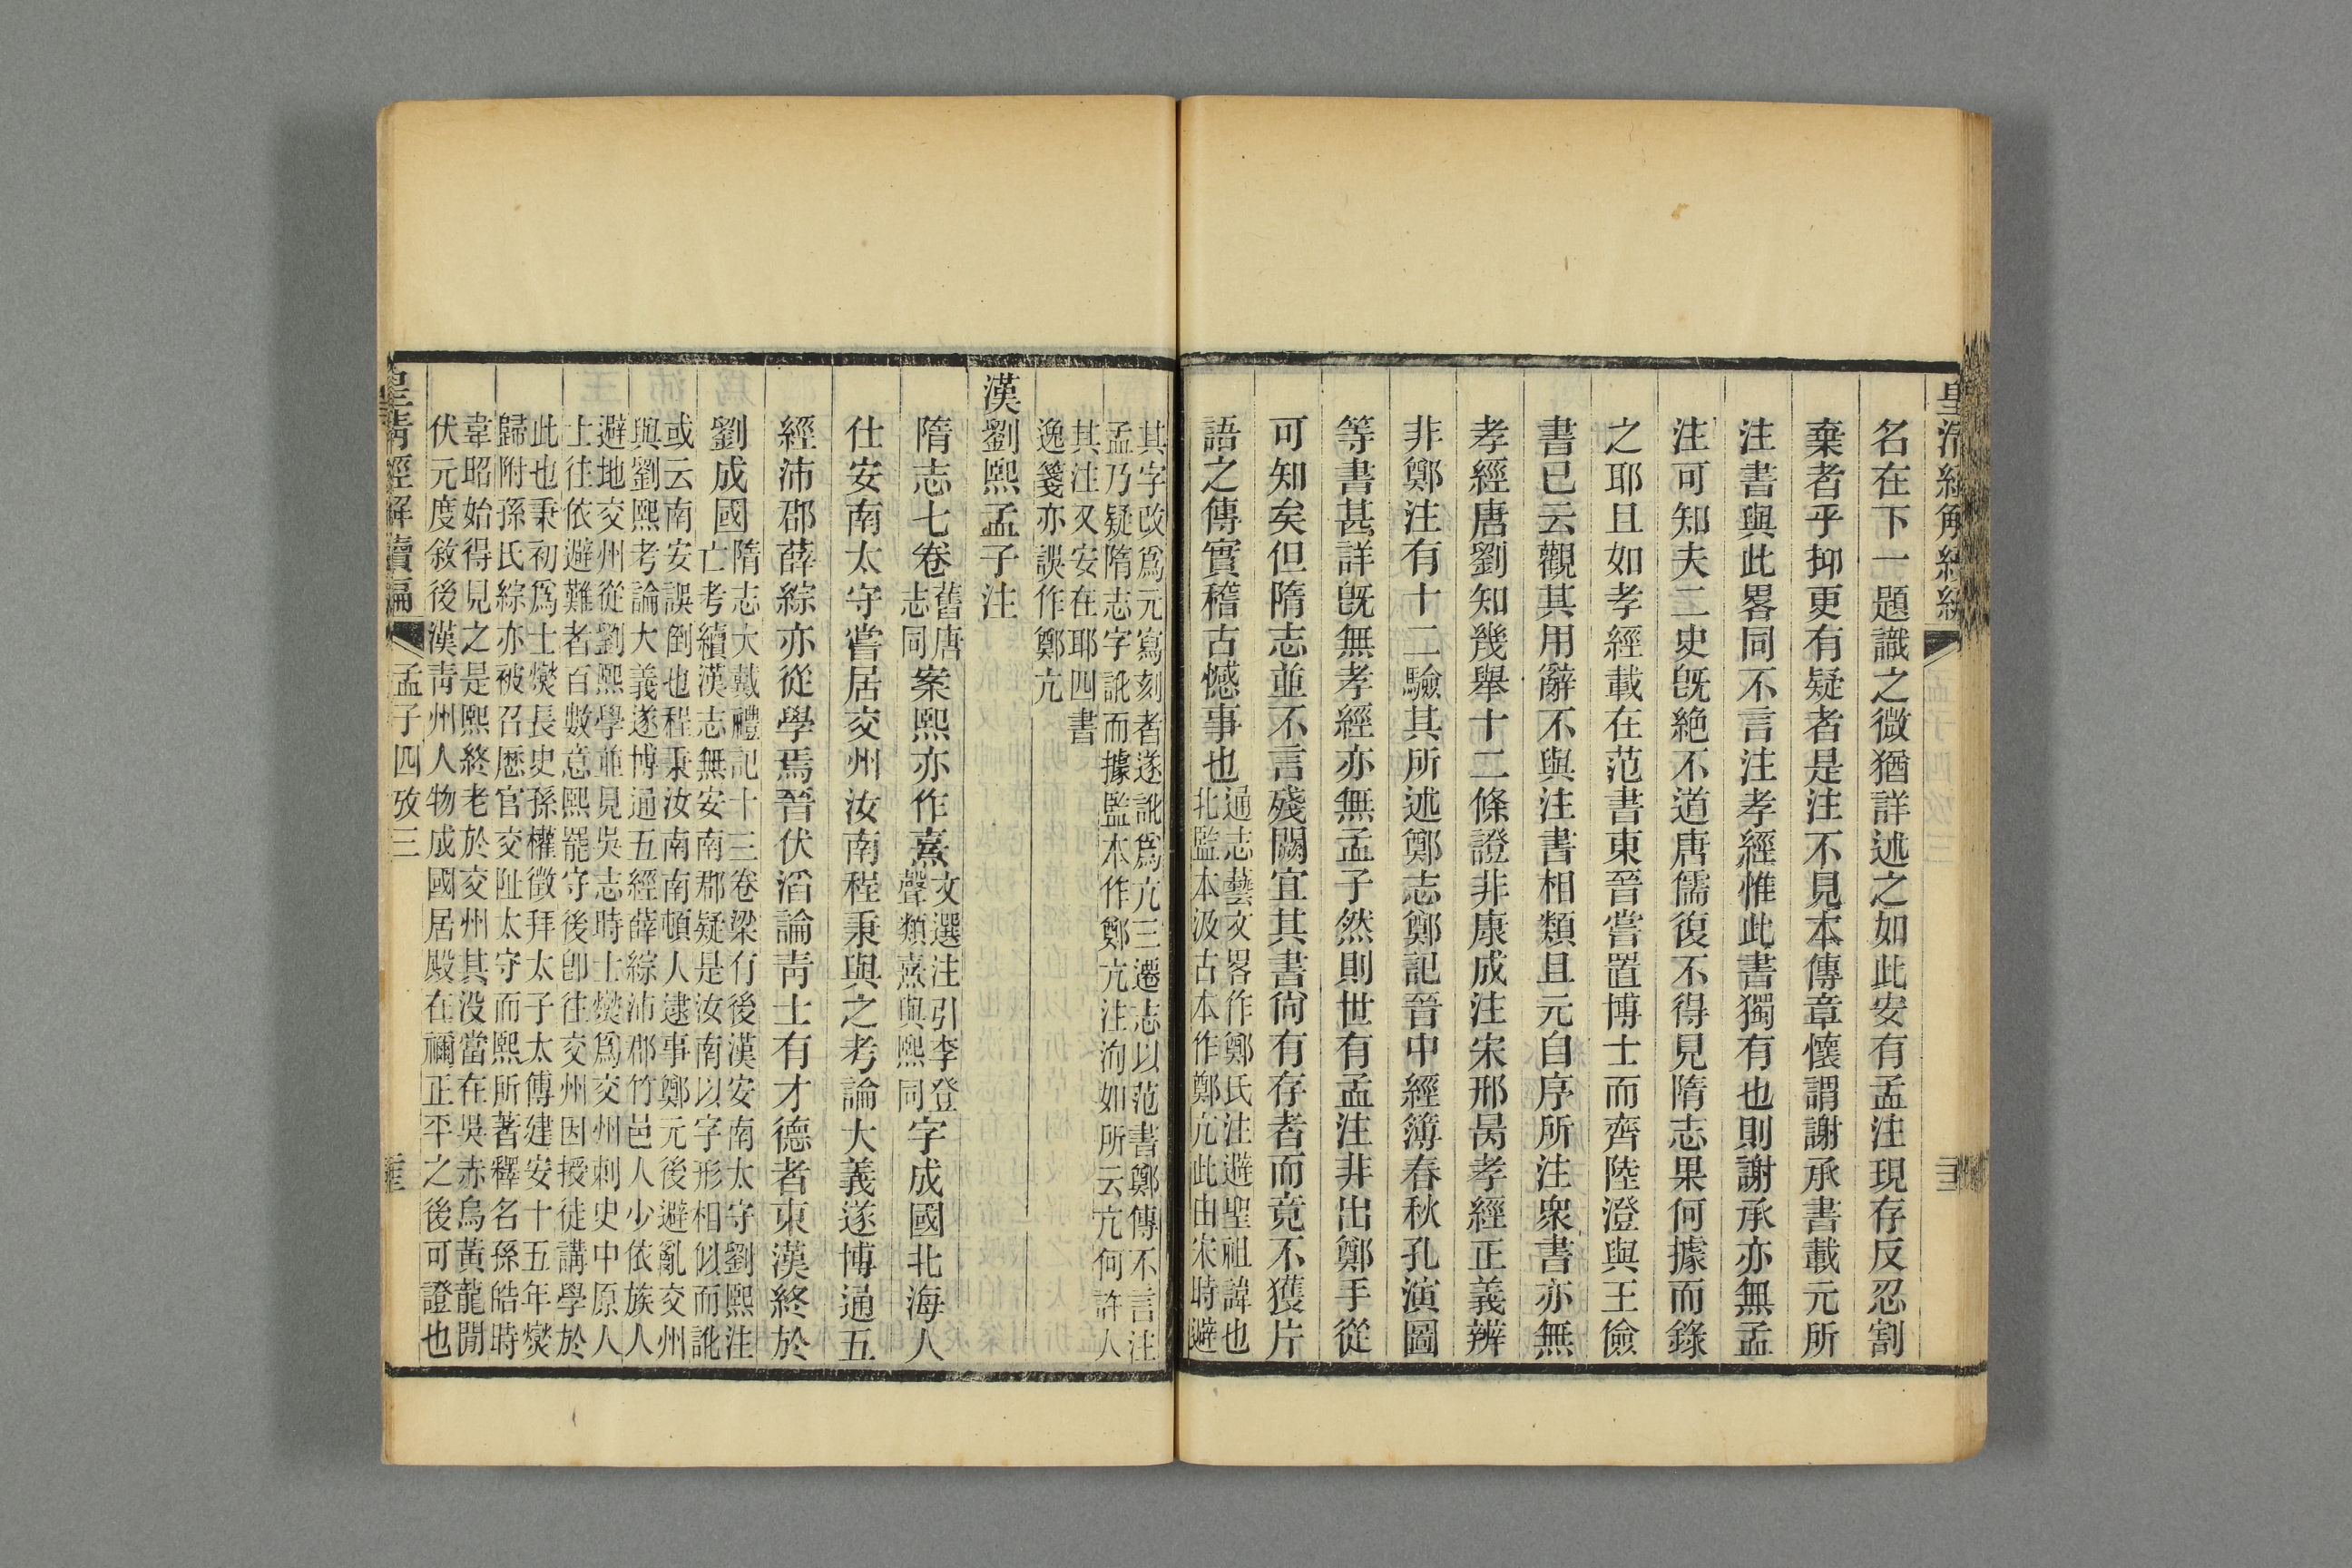 皇清經解續編
名在下一題識之微猶詳述之如此安有孟注現存反忍割
棄者乎抑更有疑者是注不見本傳章懷謂謝承書載元所
注書與此畧同不言注孝經惟此書獨有也則謝承亦無孟
注可知夫二史旣絶不道唐儒復不得見隋志果何據而錄
之耶且如孝經載在范書東晉嘗置博士而齊陸澄與王儉
書已云觀其用辭不與注書相類且元自序所注衆書亦無
孝經唐劉知幾舉十二條證非康成注宋邢昺孝經正義辨
非鄭注有十二驗其所述鄭志鄭記晉中經簿春秋孔演圖
等書甚詳旣無孝經亦無孟子然則世有孟注非出鄭手從
可知矣但隋志並不言殘闕宜其書尙有存者而竟不獲片
語之傳實稽古憾事也
通志藝文畧作鄭氏注避聖祖諱也
北監本汲古本作鄭亢此由宋時避
其字改爲元寫刻者遂訛爲亢三遷志以范書鄭傳不言注
孟乃疑隋志字訛而據監本作鄭亢注洵如所云亢何許人
其注又安在耶四書
逸箋亦誤作鄭亢
漢劉熙孟子注
隋志七卷
舊唐
志同
案熙亦作熹
文選注引李登
聲類熹與熙同
字成國北海人
仕安南太守嘗居交州汝南程秉與之考論大義遂博通五
經沛郡薛綜亦從學焉晉伏滔論靑士有才德者東漢終於
劉成國
隋志大戴禮記十三卷梁有後漢安南太守劉熙注
亡考續漢志無安南郡疑是汝南以字形相似而訛
或云南安誤倒也程秉汝南南頓人逮事鄭元後避亂交州
與劉熙考論大義遂博通五經薛綜沛郡竹邑人少依族人
避地交州從劉熙學並見吳志時士燮爲交州刺史中原人
士往依避難者百數意熙罷守後卽往交州因授徒講學於
此也秉初爲士燮長史孫權徵拜太子太傅建安十五年燮
歸附孫氏綜亦被召歷官交阯太守而熙所著釋名孫皓時
韋昭始得見之是熙終老於交州其没當在吳赤烏黃龍閒
伏元度敘後漢靑州人物成國居殿在禰正平之後可證也
皇清經解續編
孟子四攷三